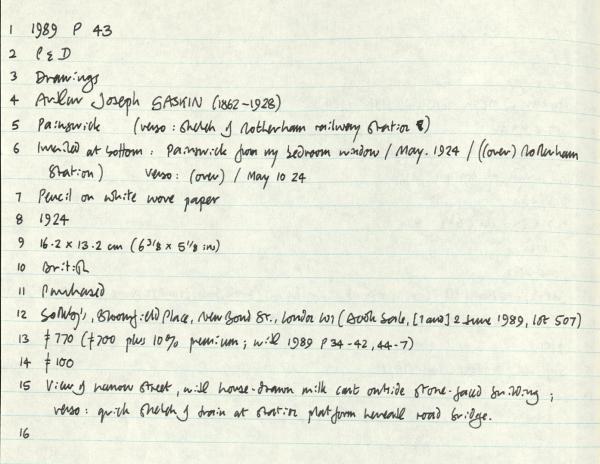 1 1989 P 43
2 P & D
3 Drawings
4 Arthur Joseph GASKIN (1862-1928)
5 Painswick (verso: sketch of Rotherham railway station)
6 Inscribed at bottom: Painswick from my bedroom window / May. 1924 / ((over) Rotherham
Station) verso: (over) / May 10 24
7 Pencil on white wove paper
8 1924
9 16.2 x 13.2 cm (6 3/8 x 5 1/8 in)
10 British
11 Purchased
12 Sotheby's, Bloomfield Place, New Bond St., London W1 (Book Sale, [1 and] 2 June 1989, lot 507)
13 £770 (£700 plus 10% premium; with 1989 P 34-42, 44-7)
14 £100
15 View of narrow street, with horse-drawn milk cart outside stone-faced building;
verso: quick sketch of train at station platform beneath road bridge.
16